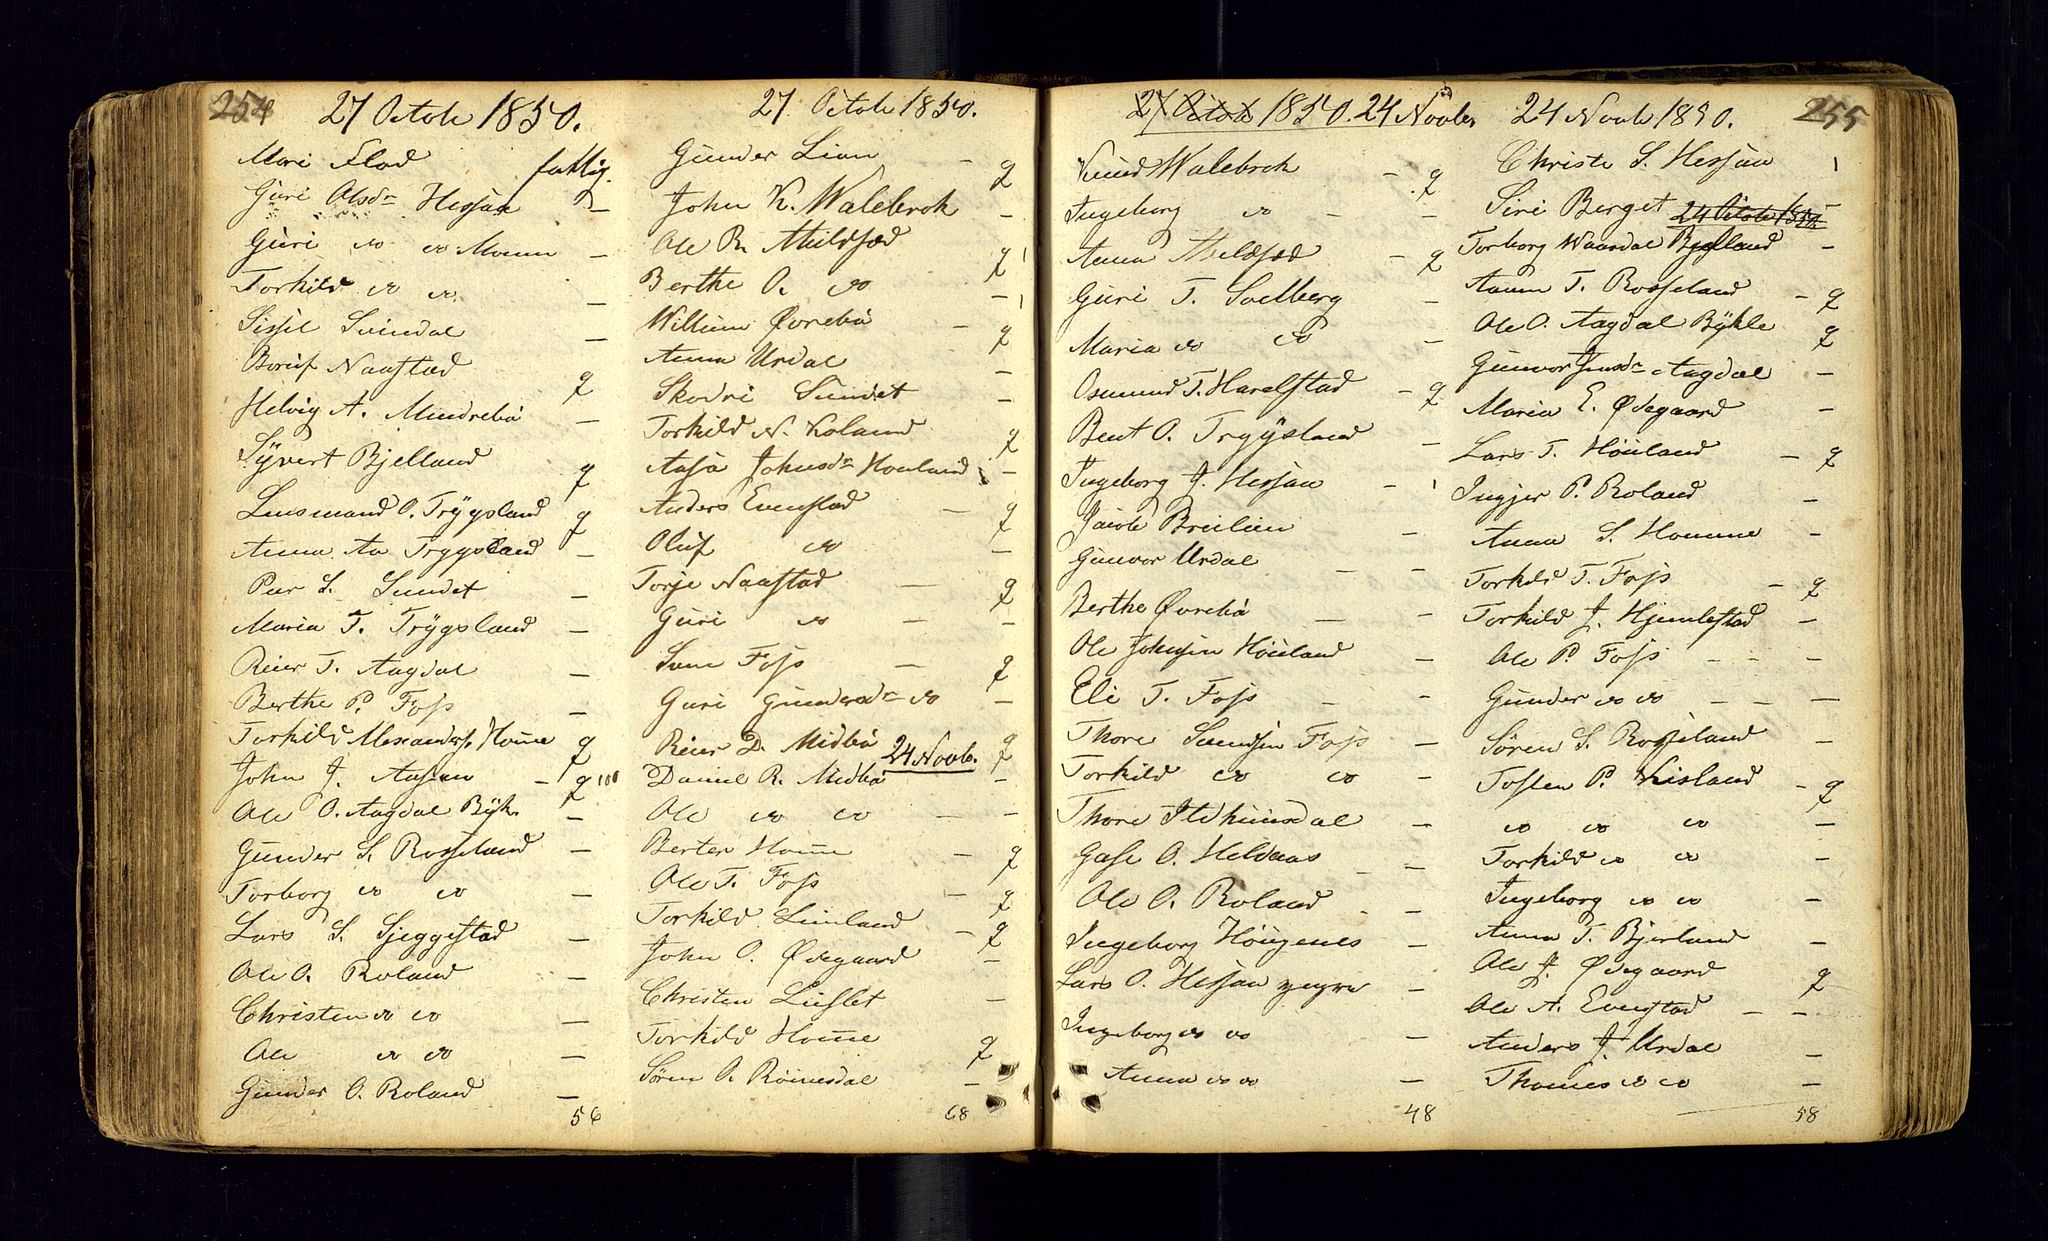 254
27 Octob 1850.
Mari Flad fattig.
Guri Olsdr Hessaa —
Guri do do Moen —
Torkild do do —
Sissil Svindal —
Naastad g
Helvig A. Mindrebö —
Syvert Bjelland g
Lensmand O. Trygsland g
Anna Aa Trygsland —
Peer S. Sundet —
Maria T. Trygsland —
Reier T. Aagdal —
Berthe P. Foss —
Torkild Alexanders. Home g
John J. Aasen — g
Ole O. Aagdal Byk. —
Gunder S. Rosseland —
Torborg do do —
Lars S. Sjeggestad —
Ole O. Roland —
Christen do do —
Ole do do —
Gunder O. Roland —
56
27. Octob 1850.
Gunder Lian — g
John K. Walebrok —
Ole R. Mildsæd g 1
Berthe O. do — 1
William Øvrebö — g
Anna Urdal —
Skodri Sundet —
Torkild N. Roland g
Aasa Johnsdr Houland —
Anders Evenstad — g
Oluf do —
Torje Naastad — g
Guri do — —
Sven Foss — g
Guri Gundersdr do —
Reier D. Midbö g
24 Novb.
Daniel R. Midbö —
Ole do do — —
Berter Home — g
Ole T. Foss — g
Torkild Linland — g
John O. Ødegaard —
Christen Lislet —
Torkild Home g
Søren O. Röinesdal —
68
27 Octob 1850. 24 Novber
Knud Walebrok — g
Ingeborg do — —
Anna Mildsæd — g
Guri T. Solberg —
Maria do do —
Osmund T. Harelstad — g
Bent O. Trygsland —
Ingeborg J. Hessaa — 1
Jacob Breilien —
Gunvor Urdal — —
Berthe Øvrebö — —
Ole Johnsen Höuland —
Eli T. Foss — —
Thore Svendsen Foss —
Torkild do do —
Thore Ildhuusdal —
O. Heldaas — —
Ole O. Roland — —
Ingeborg Höugenes —
Lars O. Hessaa yngre —
Ingeborg do do —
Anna do do —
48
255
24 Novb 1850.
Christi S. Hessaa 1
Siri Berget —
24 Octob 1850
Torborg Waardal Bjelland —
Aanen T. Rosseland — g
Ole O. Aagdal Bykle g
Gunvor Jensdr Aagdal —
Maria E. Ødegaard —
Lars T. Höuland — g
Ingjer P. Roland —
Anna S. Homme —
Torkild T. Foss — g
Torkild J. Hjemlestad —
Ole P. Foss — — —
Gunder do do — — —
Søren S. Rosseland —
Tosten P. Kisland — g
do do do —
Torkild do do —
Ingeborg do do —
Anna T. Bjerland —
Ole J. Ødegaard g
Ole A. Evenstad — —
Anders J. Urdal —
Thomes do do —
58